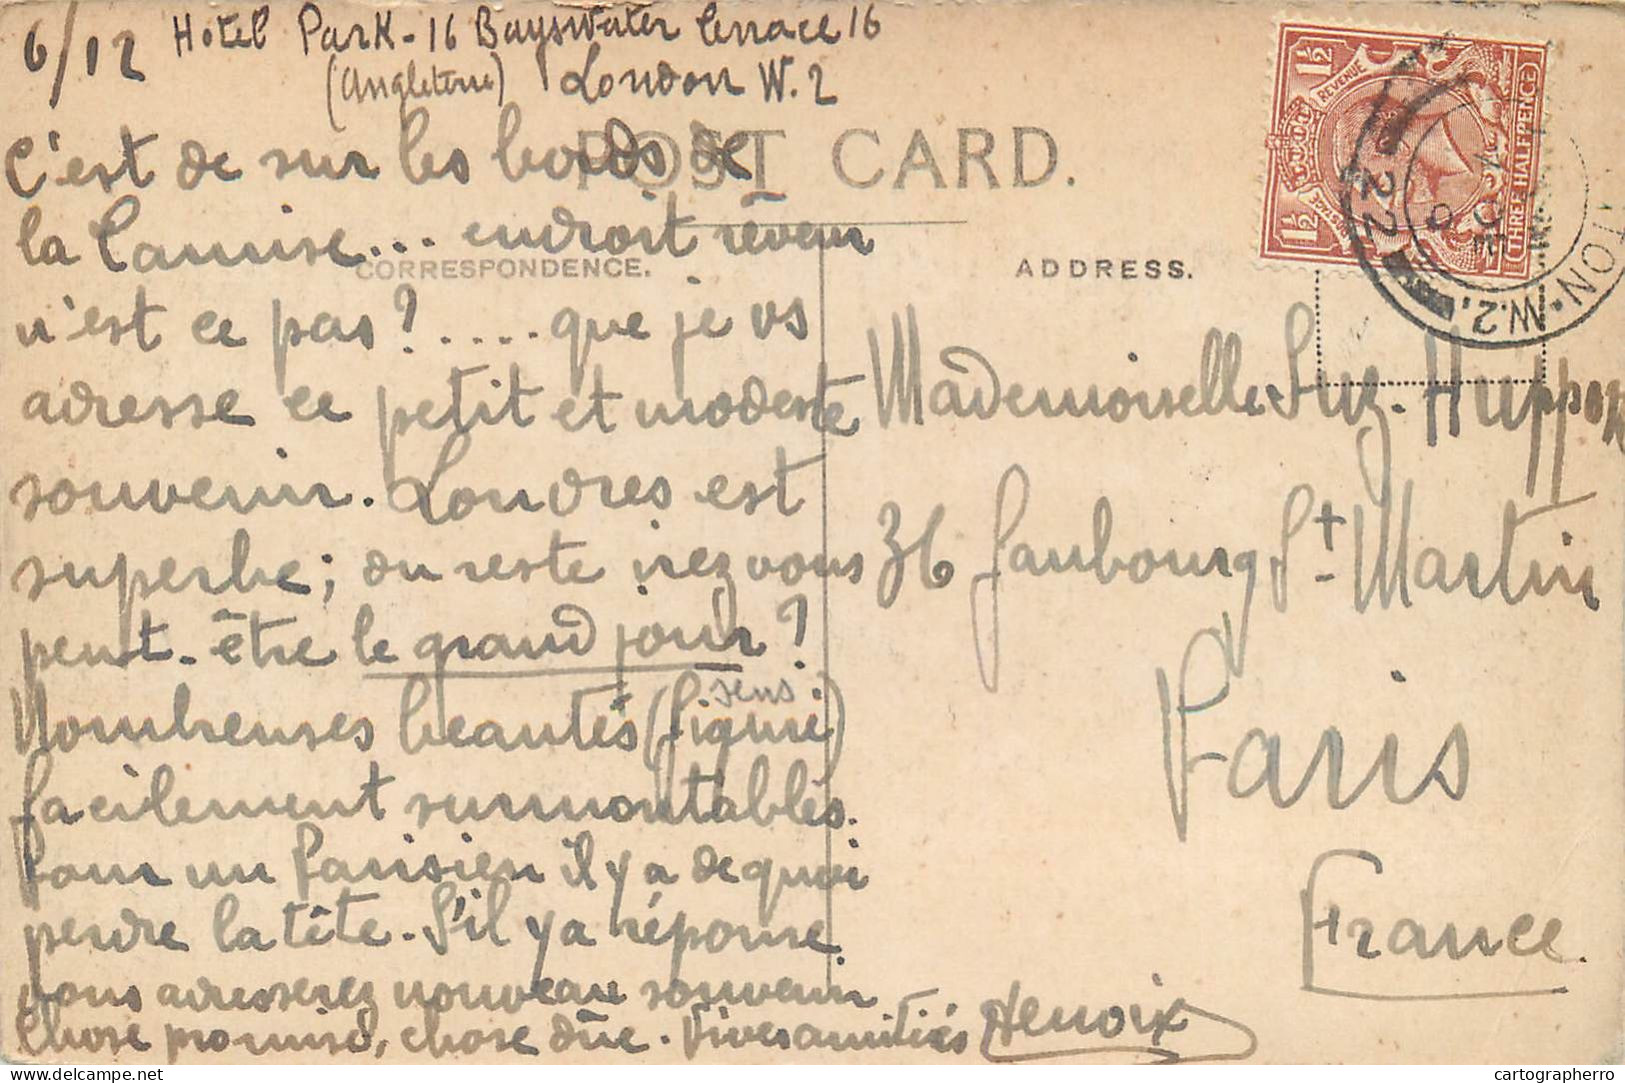 6/12 Hotel Park - 16 Bayswater Terrace 16
(Angleterre) London W.2
POST CARD.
CORRESPONDENCE.
C'est de sur les bords de
la Tamise... endroit rêveur
n'est ce pas? .... que je vs
adresse ce petit et modeste
souvenir. Londres est
superbe; du reste irez vous
peut-être le grand jour?
Nombreuses beautés (sens figuré)
facilement surmontables.
Pour un Parisien il y a de quoi
perdre la tête. S'il y a réponse
vous adresserez nouveau souvenir
Chose promise, chose dûe. Vives amitiés
ADDRESS.
Mademoiselle Suz. Huppon
36 faubourg St. Martin
Paris
France.
1½ REVENUE
1½ POSTAGE
THREE HALFPENCE
TON. W.2.
DE
22
cartographerro